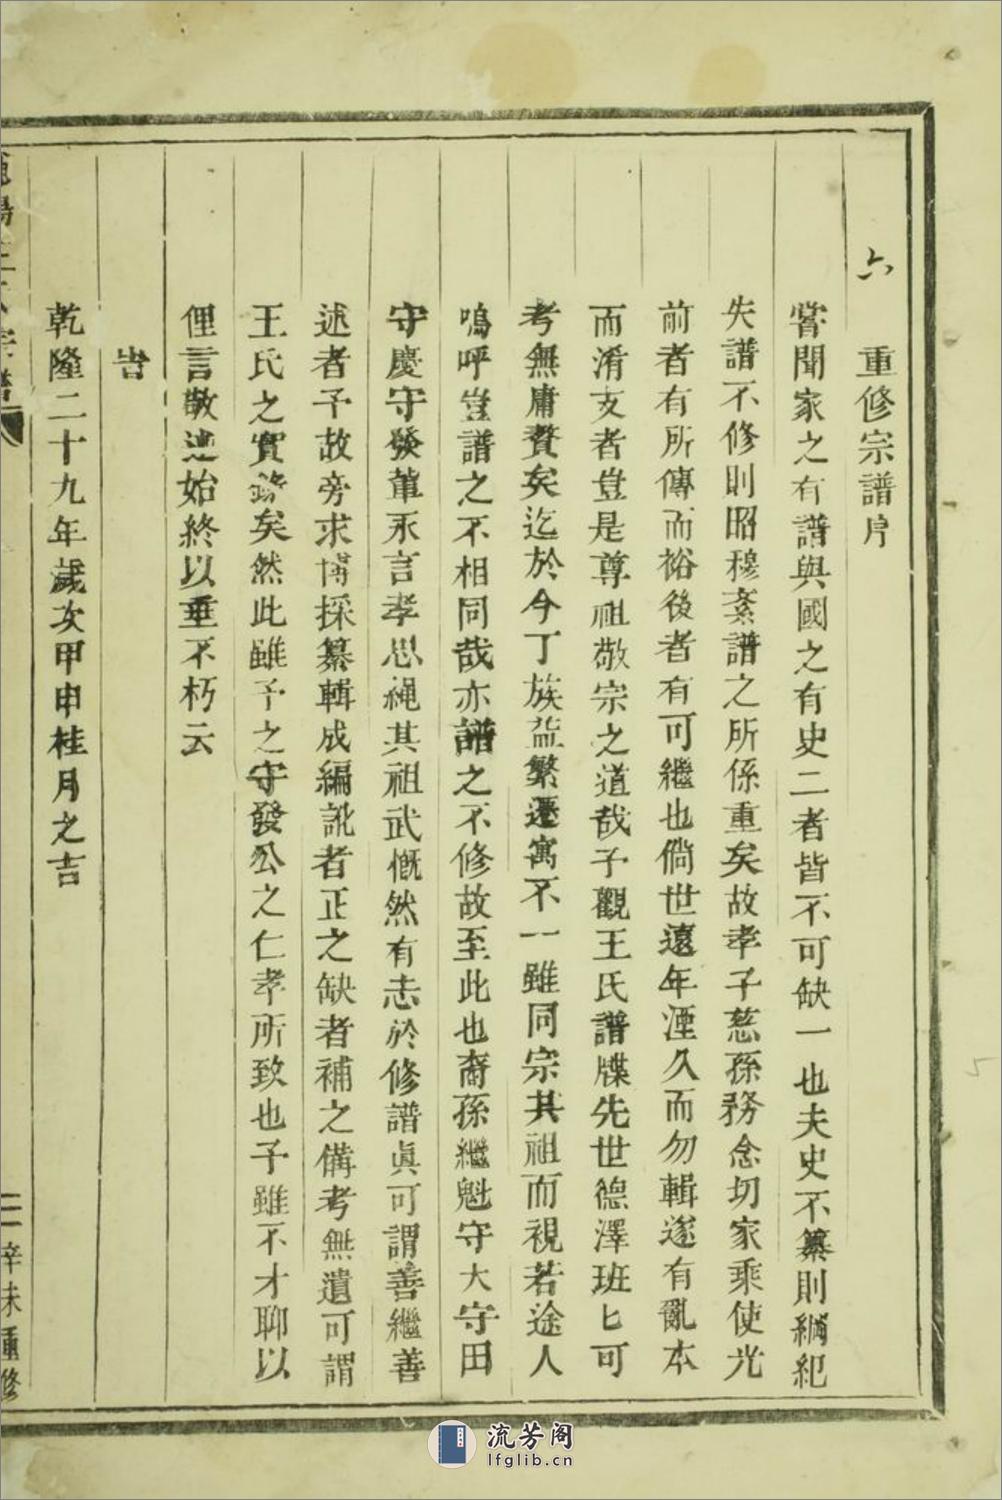 六　重修宗譜序
嘗聞家之有譜與國之有史二者皆不可缺一也夫史不纂則綱紀
失譜不修則昭穆紊譜之所係重矣故孝子慈孫務念切家乘使光
前者有所傳而裕後者有可繼也倘世遠年湮久而勿輯遂有亂本
而淆支者豈是尊祖敬宗之道哉予觀王氏譜牒先世德澤班匕可
考無庸贅矣迄於今丁族益繁遷寓不一雖同宗其祖而視若途人
嗚呼豈譜之不相同哉亦譜之不修故至此也裔孫繼魁守大守田
守慶守發董永言孝思繩其祖武慨然有志於修譜眞可謂善繼善
述者予故旁求博採纂輯成編訛者正之缺者補之備考無遺可謂
王氏之實錄矣然此雖予之守發公之仁孝所致也予雖不才聊以
俚言敬述始終以垂不朽云
旹
乾隆二十九年歲次甲申桂月之吉
王氏宗譜
二
辛未重修
流芳阁
lfglib.cn